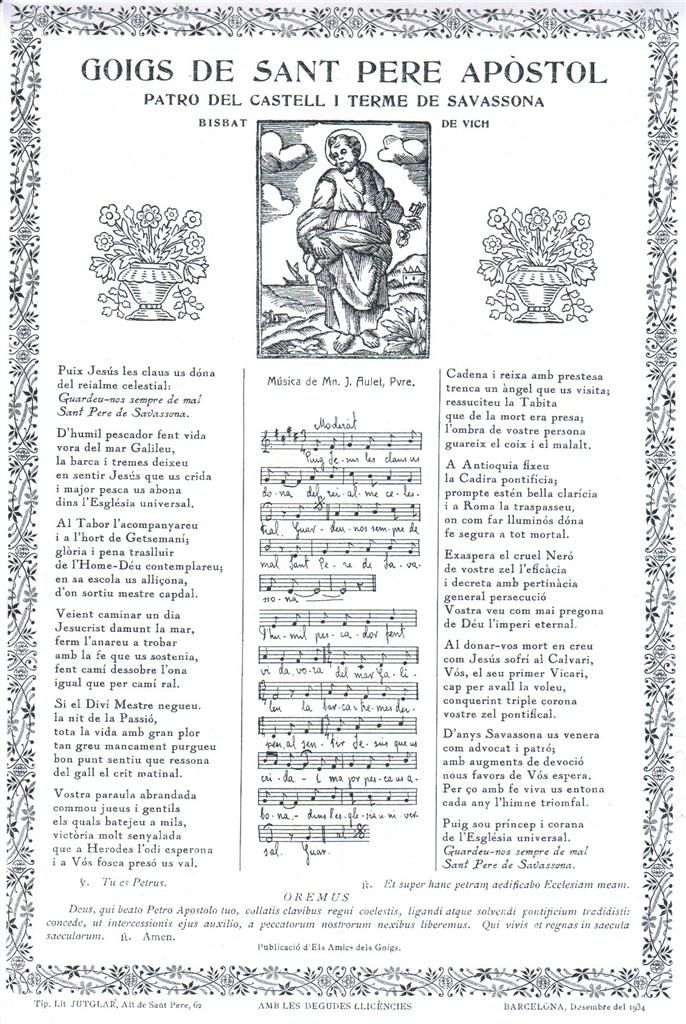 GOIGS DE SANT PERE APÒSTOL
PATRO DEL CASTELL I TERME DE SAVASSONA
BISBAT DE VICH
Puix Jesús les claus us dóna
del reialme celestial:
Guardeu-nos sempre de mal
Sant Pere de Savassona.
D'humil pescador fent vida
vora del mar Galileu,
la barca i tremes deixeu
en sentir Jesús que us crida
i major pesca us abona
dins l'Església universal.
Al Tabor l'acompanyareu
i a l'hort de Getsemaní;
glòria i pena traslluir
de l'Home-Déu contemplareu;
en sa escola us alliçona,
d'on sortiu mestre capdal.
Veient caminar un dia
Jesucrist damunt la mar,
ferm l'anareu a trobar
amb la fe que us sostenia,
fent camí dessobre l'ona
igual que per camí ral.
Si el Diví Mestre negueu.
la nit de la Passió,
tota la vida amb gran plor
tan greu mancament purgueu
bon punt sentiu que ressona
del gall el crit matinal.
Vostra paraula abrandada
commou jueus i gentils
els quals batejeu a mils,
victòria molt senyalada
que a Herodes l'odi esperona
i a Vós fosca presó us val.
Música de Mn. J. Aulet, Pvre.
Moderat
Puig Je-sus les claus us
do-na del rei-al-me ce-les-
tial. Guar-deu-nos sem-pre de
mal Sant Pe-re de Sa-va-
sso-na
D'hu-mil pes-ca-dor fent
vi-da, vo-ra del mar Ga-li-
leu la bar-ca i tre-mes dei-
xeu, al sen-tir Je-sus que us
cri-da- i ma jor pes-ca us a-
bo-na- dins l'es-gle-sia u-ni-ver-
sal. Guar.
Cadena i reixa amb prestesa
trenca un àngel que us visita;
ressuciteu la Tabita
que de la mort era presa;
l'ombra de vostre persona
guareix el coix i el malalt.
A Antioquia fixeu
la Cadira pontifícia;
prompte estén bella claricia
i a Roma la traspasseu,
on com far lluminós dóna
fe segura a tot mortal.
Exaspera el cruel Neró
de vostre zel l'eficàcia
i decreta amb pertinàcia
general persecució
Vostra veu com mai pregona
de Déu l'imperi eternal.
Al donar-vos mort en creu
com Jesús sofrí al Calvari,
Vós, el seu primer Vicari,
cap per avall la voleu,
conquerint triple corona
vostre zel pontifical.
D'anys Savassona us venera
com advocat i patró;
amb augments de devoció
nous favors de Vós espera.
Per ço amb fe viva us entona
cada any l'himne triomfal.
Puig sou príncep i corana
de l'Església universal.
Guardeu-nos sempre de mal
Sant Pere de Savassona.
℣. Tu es Petrus.
℟. Et super hanc petram aedificabo Ecclesiam meam.
OREMUS
Deus, qui beato Petro Apostolo tuo, collatis clavibus regni coelestis, ligandi atque solvendi pontificium tradidisti:
concede, ut intercessionis ejus auxilio, a peccatorum nostrorum nexibus liberemus. Qui vivis et regnas in saecula
saeculorum. ℟. Amen.
Publicació d'Els Amics dels Goigs.
Tip. Lit JUTGLAR, Alt de Sant Pere, 62 AMB LES DEGUDES LLICÈNCIES BARCELONA, Desembre del 1934